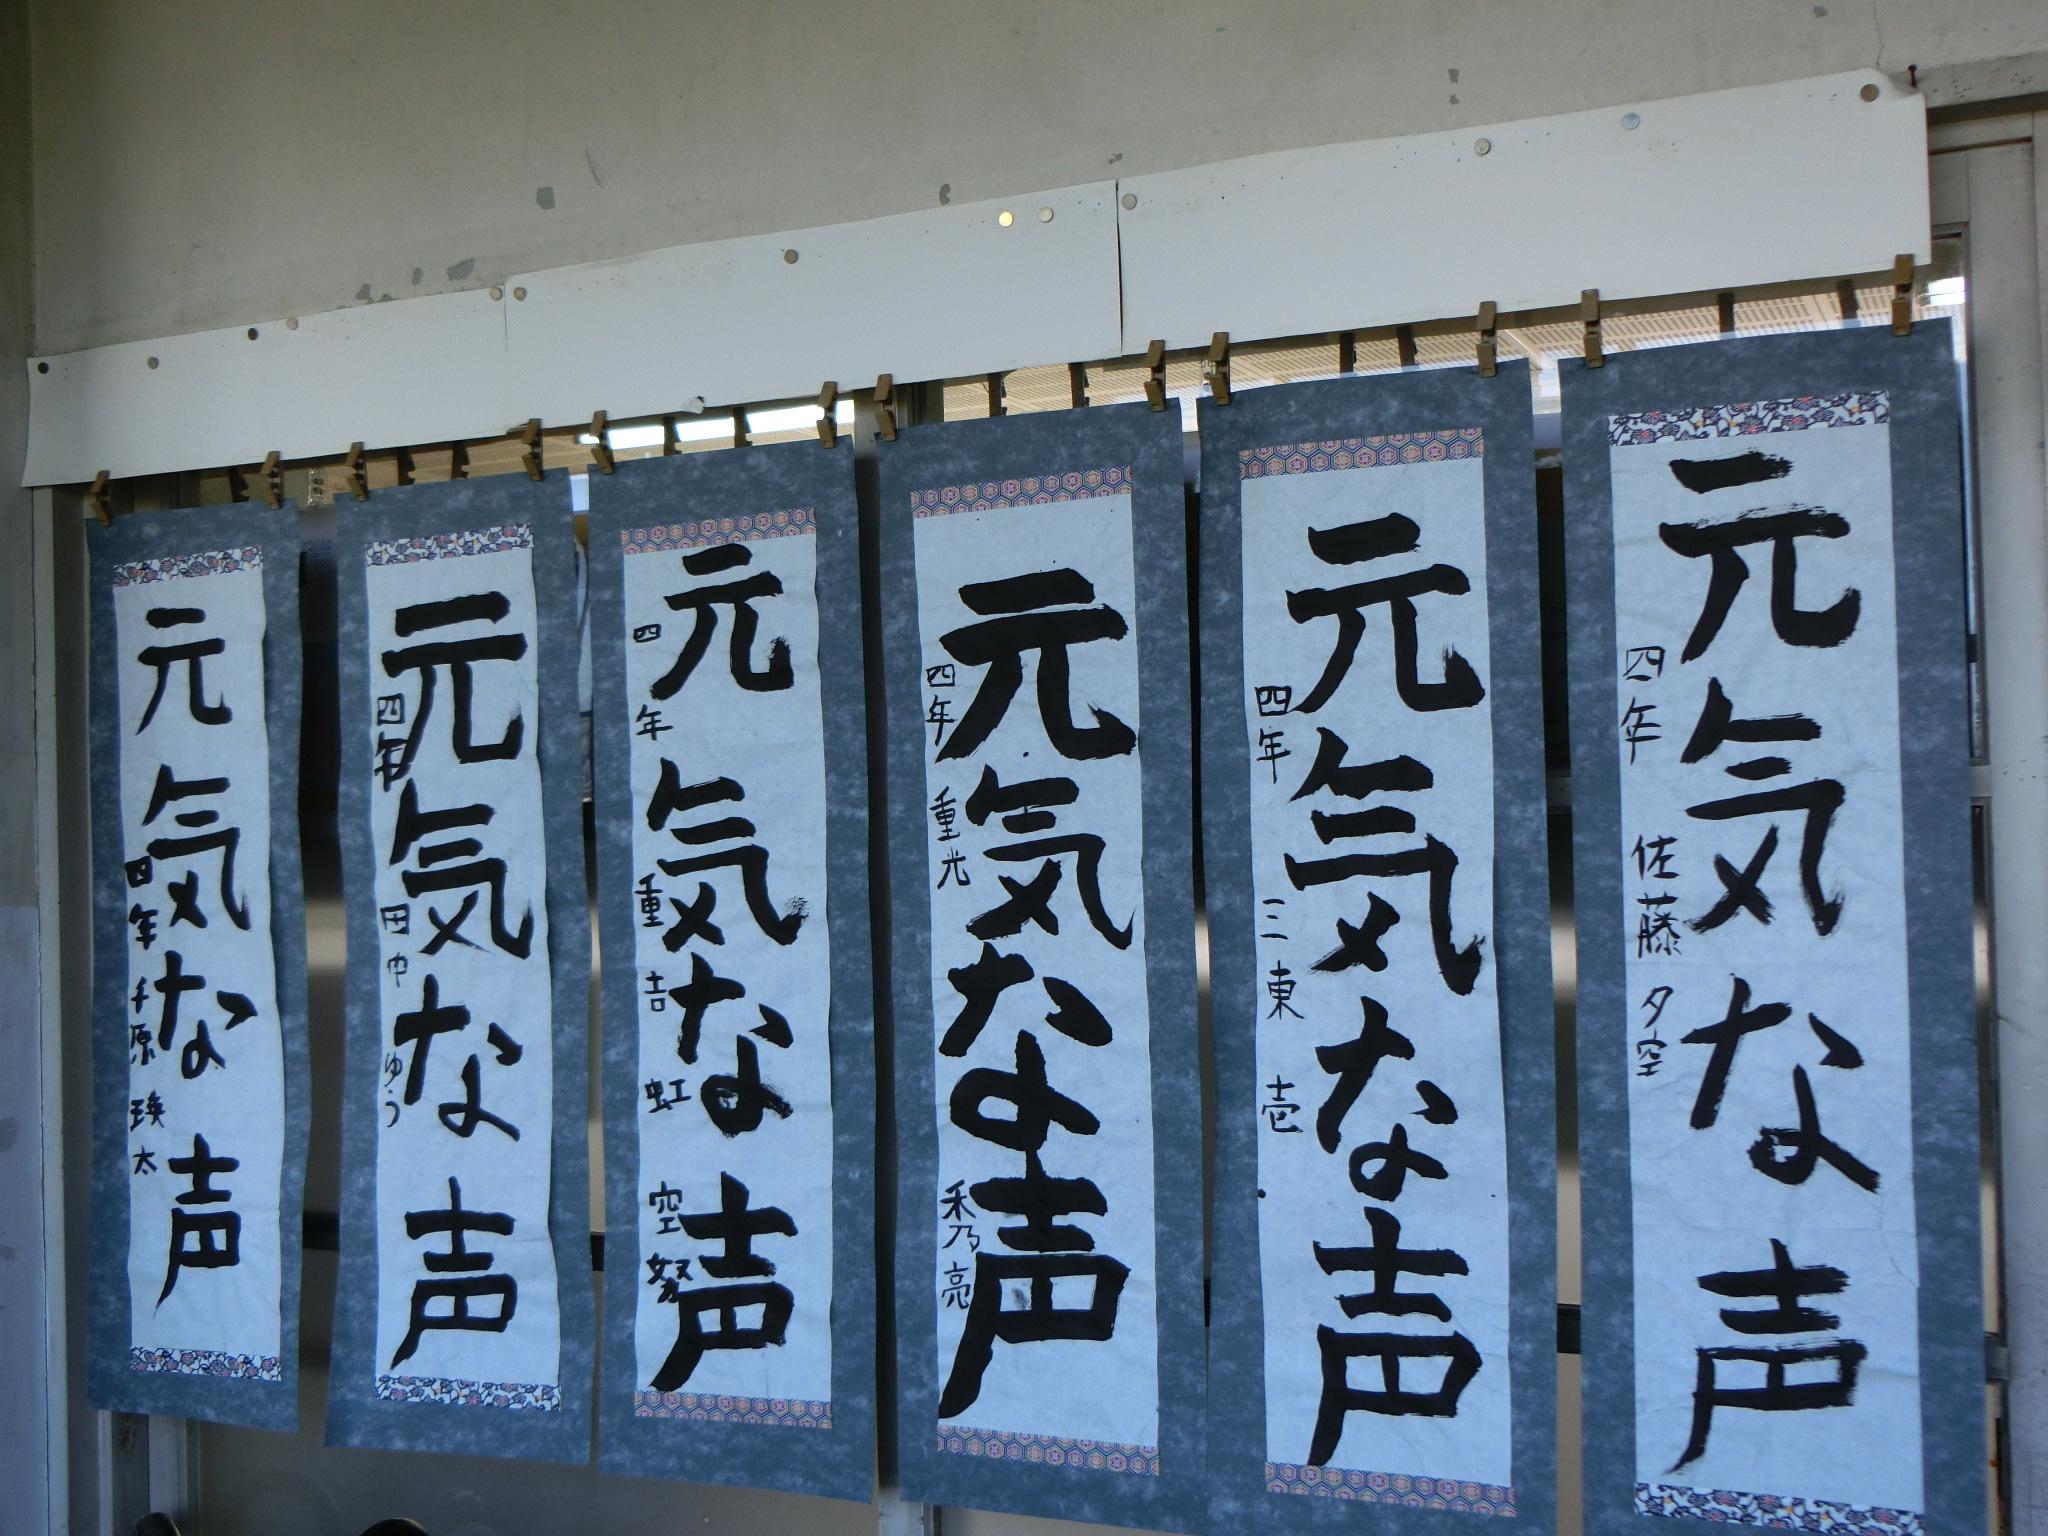 元気な声
四年 佐藤 夕空
元気な声
四年 三東 壱
元気な声
四年 重光 秀亮
元気な声
四年 重吉 虹空
元気な声
四年 田中 ゆう
元気な声
四年 千原 瑛太